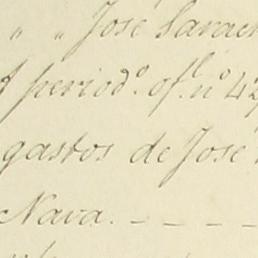 " " José Sarach
period.º of.l nº 42
gastos de José
Nava. - - - -